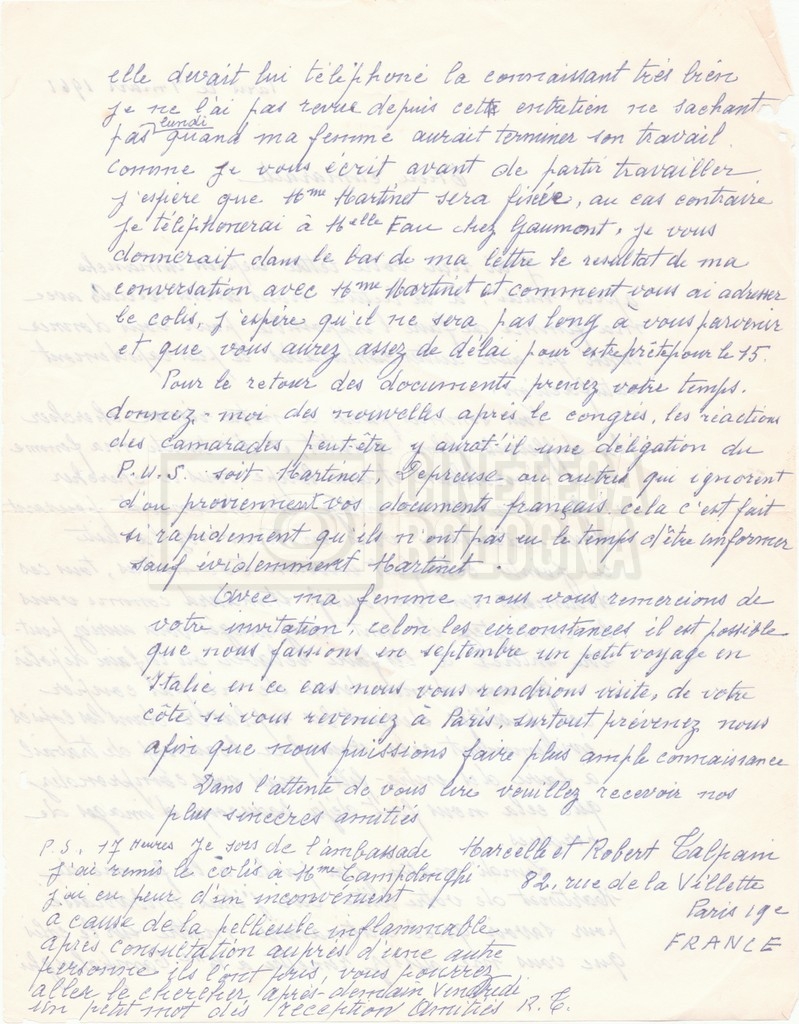 elle devait lui téléphoné la connaissant très bien
je ne l'ai pas revue depuis cette entretien ne sachant
lundi
pas quand ma femme aurait terminer son travail.
Comme je vous écrit avant de partir travailler
j'espère que Mme Martinet sera fixée, au cas contraire
je téléphonerai à Melle Fau chez Gaumont, je vous
donnerait dans le bas de ma lettre le resultat de ma
conversation avec Mme Martinet et comment vous ai adresser
le colis, j'espère qu'il ne sera pas long à vous parvenir
et que vous aurez assez de délai pour estre prête pour le 15.
Pour le retour des documents prenez votre temps.
donnez-moi des nouvelles après le congrès, les réactions
des camarades, peut-être y aurat'il une délégation du
P.U.S. soit Martinet Depreuse, ou autres qui ignorent
d'ou proviennent vos documents français cela c'est fait
si rapidement qu'ils n'ont pas eu le temps d'être informer
sauf évidemment Martinet.
Avec ma femme nous vous remercions de
votre invitation, celon les circonstances il est possible
que nous fassions en septembre un petit voyage en
Italie en ce cas nous vous rendrions visite, de votre
côté si vous reveniez à Paris, surtout prevenez nous
afin que nous puissions faire plus ample connaissance
Dans l'attente de vous lire veuillez recevoir nos
plus sincères amitiés
Marcelle et Robert Talpain
82, rue de la Villette
Paris 19e
FRANCE
P.S. 17 Heures Je sors de l'ambassade
j'ai remis le colis à Mme Campdonghi
j'ai eu peur d'un inconvénient
a cause de la pellicule inflammable
après consultation auprès d'une autre
personne ils l'ont pris, vous pourrez
aller le chercher après-demain Vendredi
un petit mot dès reception Amitiés R.T.
CINETECA
BOLOGNA